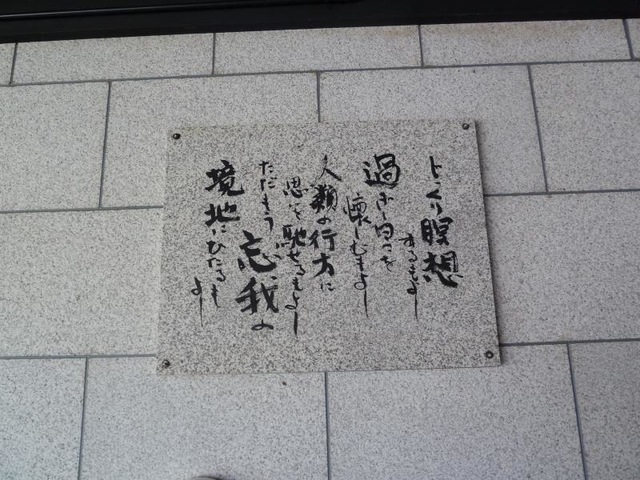 じっくり瞑想
するもよし
過ぎし日々を
懐しむもよし
人類の行方に
思いを馳せるもよし
ただもう忘我の
境地にひたるも
よし